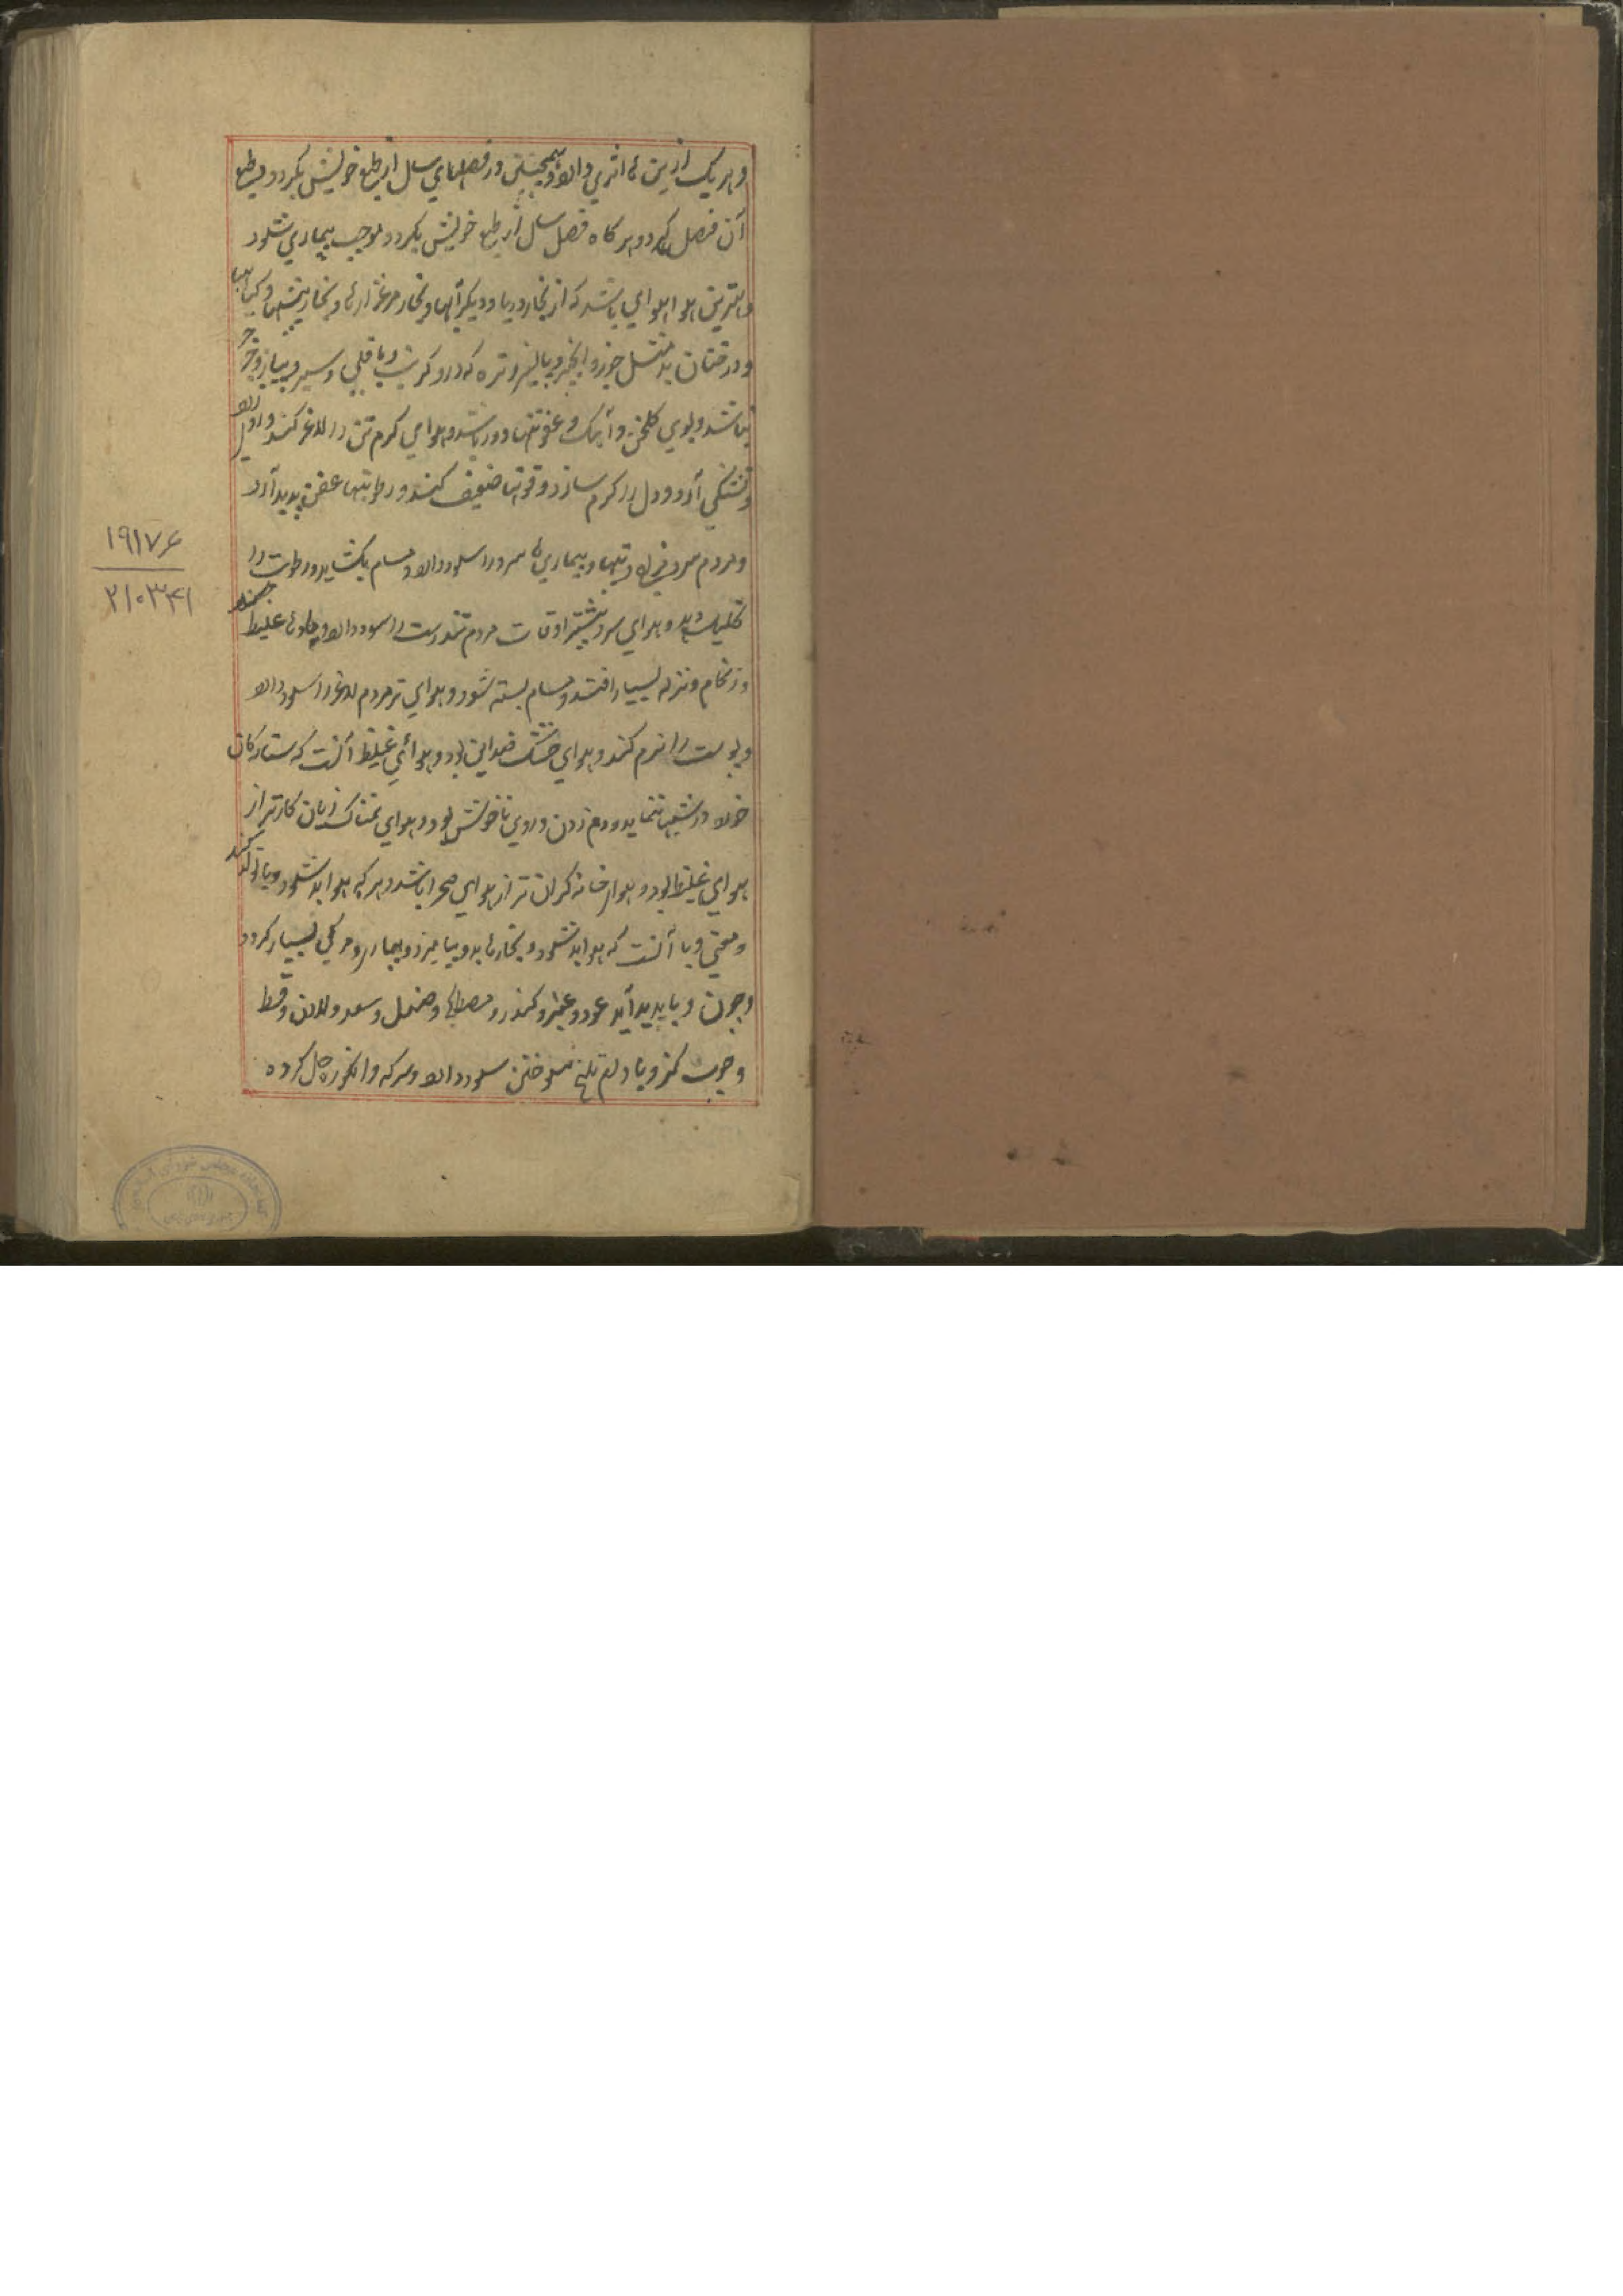 و هر یک ازین ها اثری دارد و همچنین در فصلهای سال از طبع خویش بگردد و طبع
آن فصل گیرد و هر گاه فصل سال از طبع خویش بگردد موجب بیماری شود
و بهترین هوا هوای باشد که از بخار دریا و دیگر آبها و بخار مرغزارها و بخار بیشها و گیاهها
و درختان بد مثل جوز و انجیر و پالیز و تره که درو کرنب و باقلی و سیر و پیاز و
نباشد و بوی کلخن و آبک و عفونتها دور باشد و هوای کرم تن را لاغر کند و اول
و تشنگی آرد و دل را کرم سازد و قوتها ضعیف کند و رطوبتها عفن پدید آرد
و مردم سرد مزاج و بیماری ها سرد را سود دارد و مسام بکشاید و رطوبت را
تحلیل دهد و هوای سرد بیشتر اوقات مردم تندرست را سود دارد و غلیظ
و زکام و نزله بسیار افتد و مسام بسته شود و هوای تر مردم لاغر را سود دارد
و پوست را نرم کند و هوای خشک ضد این بود و هوائی غلیظ آنست که ستارکان
خرد در شب ننماید و دم زدن در وی ناخوش بود و هوای نمناک زیان کارتر از
هوای غلیظ بود و هوا خانه کران تر از هوای صحرا باشد و هر که هوا بد شود و با تولد کند
و معنی وبا آنست که هوا بد شود و بخارها بدو بیامیزد و بیمار و مرکی بسیار کردد
و چون وبا پدید آید عود و عنبر و کندر و مصطکی و صندل و سعد و لادن و قسط
و چوب کز و بادام تلخ سوختن سود دارد و سرکه و انکوزه حل کرده
۱۹۱۷۶
۲۱۰۳۴۱